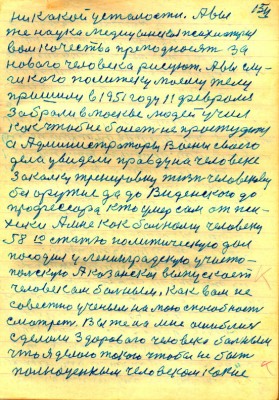 ни какой усталости. А вы
же наука медицинской психиатру
вам качества преподносят за
нового человека рисуют. А вы слу-
гикого политику моему телу
пришили в 1951 году 11 февраля
Забрали в москве людей учил
как чтоб не болеть не простудит
а Администраторы Воены своего
дела увидели правду на человеке
Закалку тренировку
бы оружие да до Виденского до
профессора кто умер сам от пси-
хики А мне как больному человеку
58 ю статью политическую дал
посадил у Ленинградскую
А казанская выпускает
человеком больным. Как вам не
совестно ученым на мою способность
смотреть. Вы же на мне ошиблись
сделали Здорового человека больным
что я делаю такого чтобы не быть
полноценным человеком какие